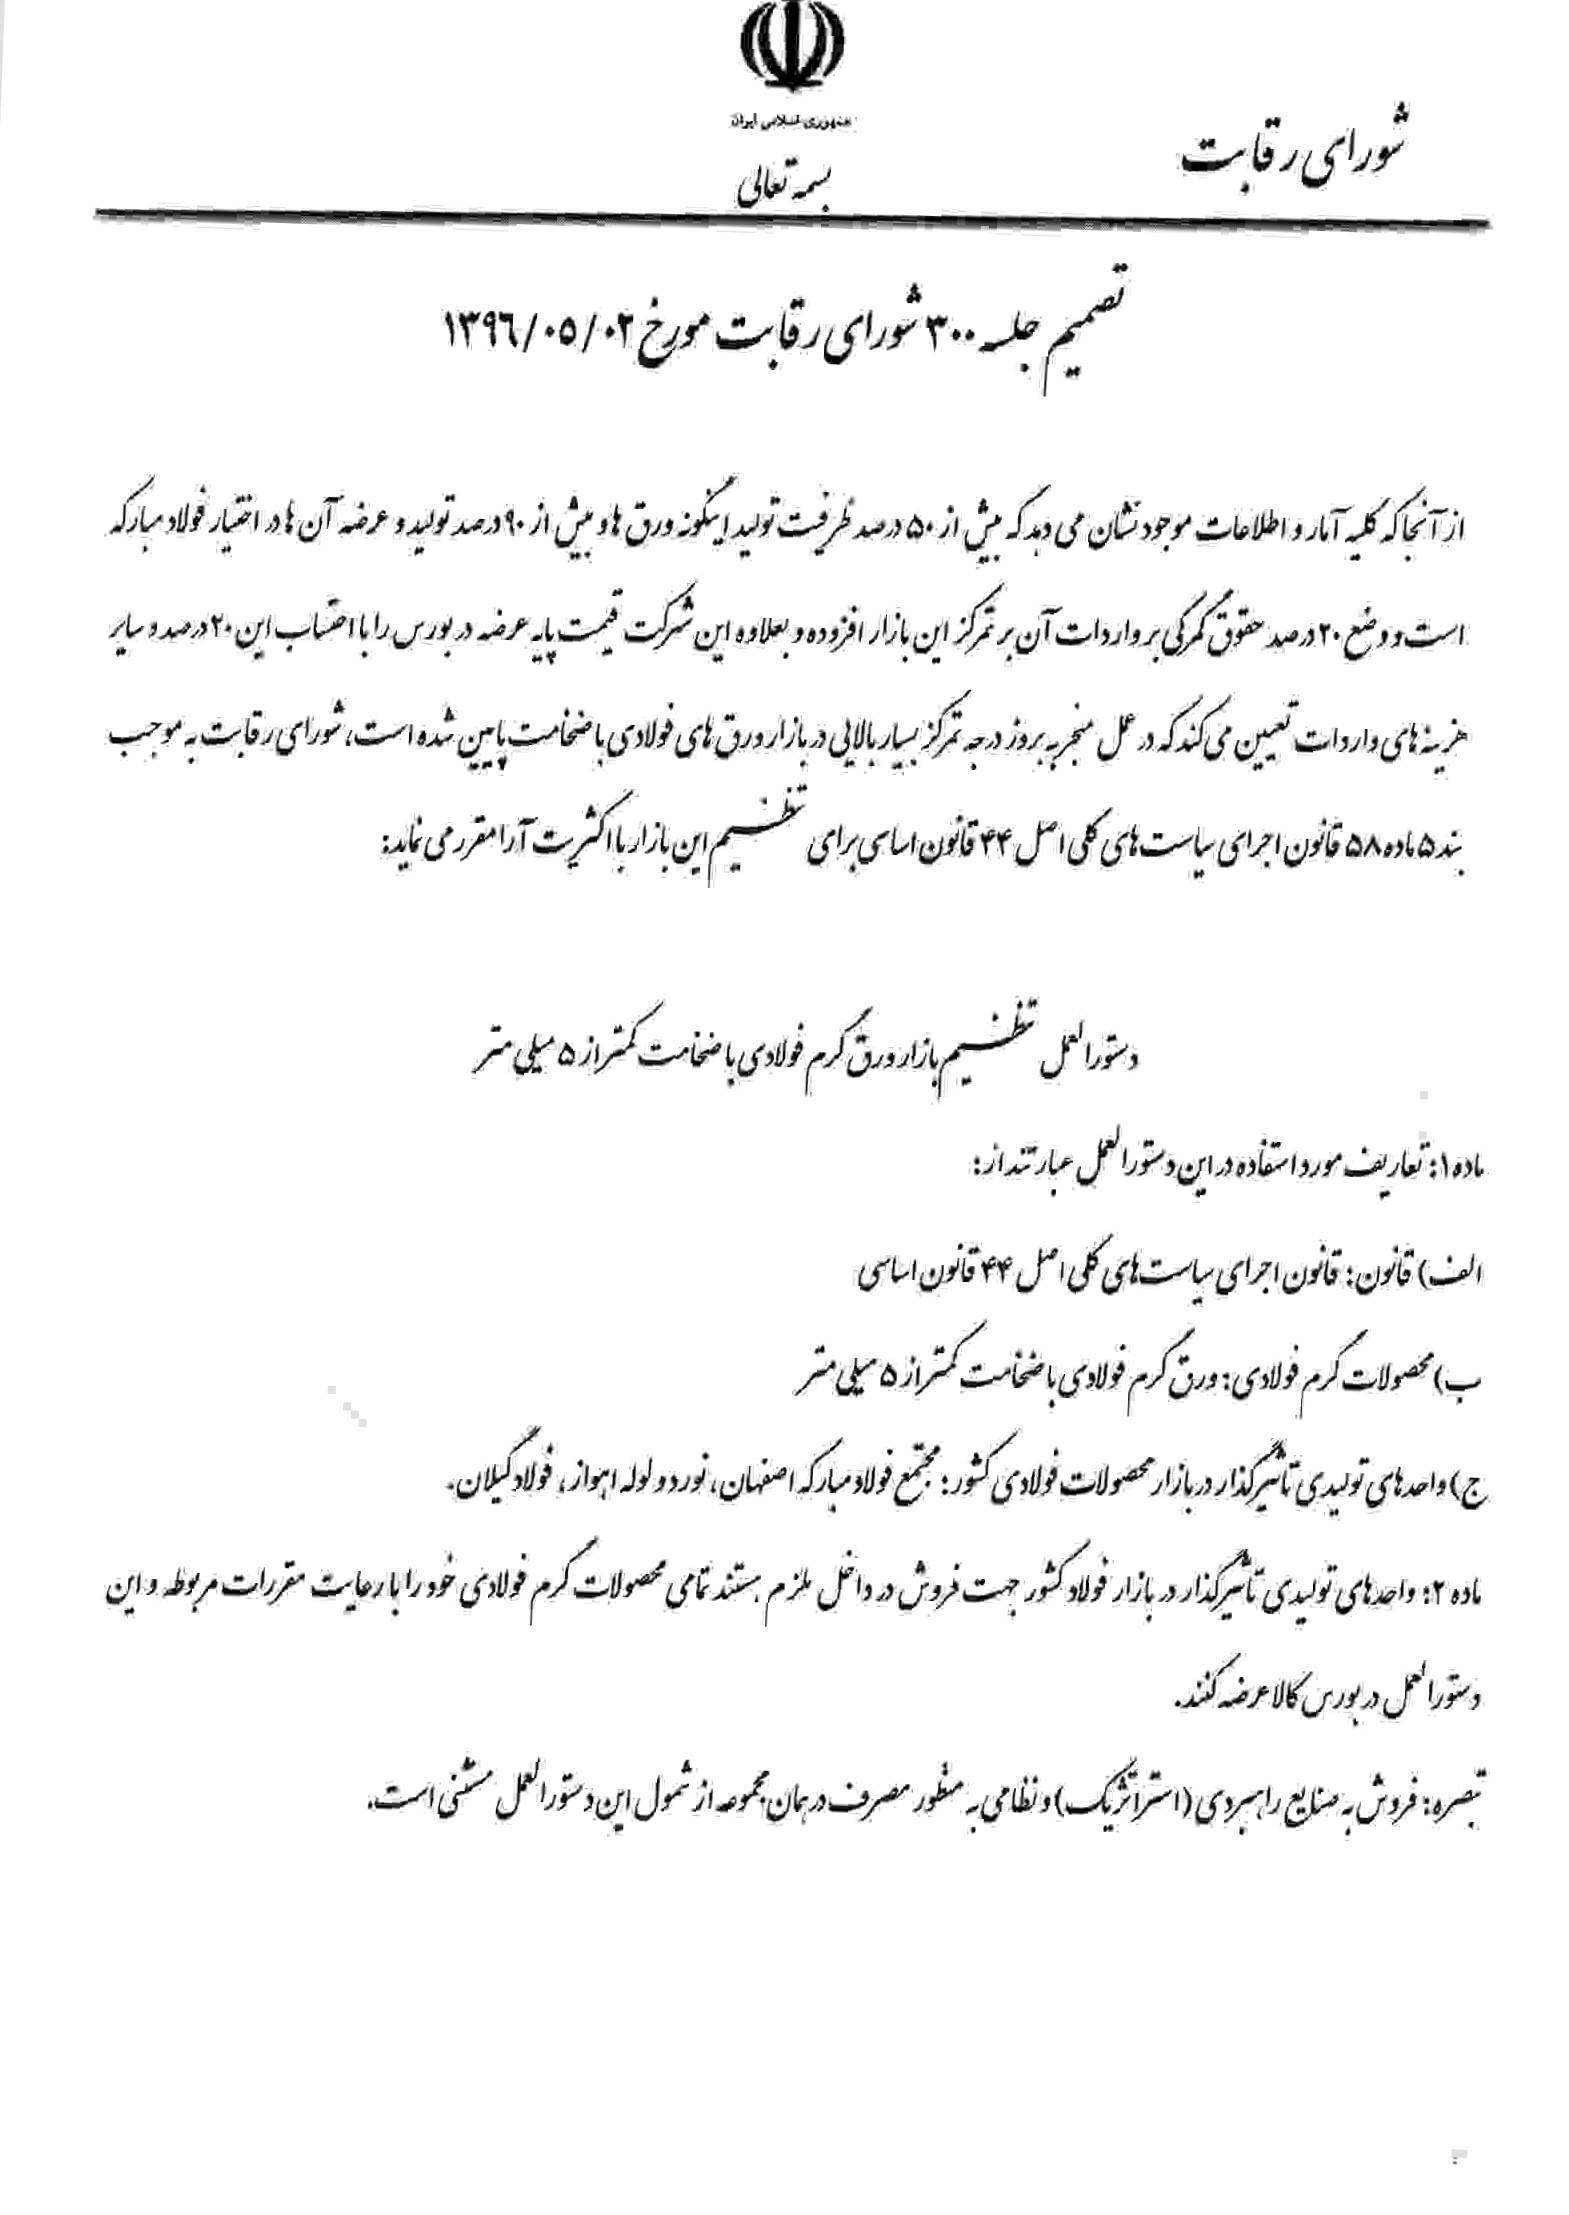 جمهوری اسلامی ایران
شورای رقابت
بسمه تعالی
تصمیم جلسه ۳۰۰ شورای رقابت مورخ ۱۳۹۶/۰۵/۰۲
از آنجا که کلیه آمار و اطلاعات موجود نشان می دهد که بیش از ۵۰ درصد ظرفیت تولید اینگونه ورق ها و بیش از ۹۰ درصد تولید و عرضه آن ها در اختیار فولاد مبارکه
است و وضع ۲۰ درصد حقوق گمرکی بر واردات آن بر تمرکز این بازار افزوده و بعلاوه این شرکت قیمت پایه عرضه در بورس را با احتساب این ۲۰ درصد و سایر
هزینه های واردات تعیین می کند که در عمل منجر به بروز درجه تمرکز بسیار بالایی در بازار ورق های فولادی با ضخامت پایین شده است، شورای رقابت به موجب
بند ۵ ماده ۵۸ قانون اجرای سیاست های کلی اصل ۴۴ قانون اساسی برای تنظیم این بازار با اکثریت آرا مقرر می نماید:
دستورالعمل تنظیم بازار ورق گرم فولادی با ضخامت کمتر از ۵ میلی متر
ماده ۱: تعاریف مورد استفاده در این دستورالعمل عبارتند از:
الف) قانون: قانون اجرای سیاست های کلی اصل ۴۴ قانون اساسی
ب) محصولات گرم فولادی: ورق گرم فولادی با ضخامت کمتر از ۵ میلی متر
ج) واحدهای تولیدی تاثیرگذار در بازار محصولات فولادی کشور: مجتمع فولاد مبارکه اصفهان، نورد و لوله اهواز، فولاد گیلان.
ماده ۲: واحدهای تولیدی تاثیرگذار در بازار فولاد کشور جهت فروش در داخل ملزم هستند تمامی محصولات گرم فولادی خود را با رعایت مقررات مربوطه و این
دستورالعمل در بورس کالا عرضه کنند.
تبصره: فروش به صنایع راهبردی (استراتژیک) و نظامی به منظور مصرف در همان مجموعه از شمول این دستورالعمل مستثنی است.